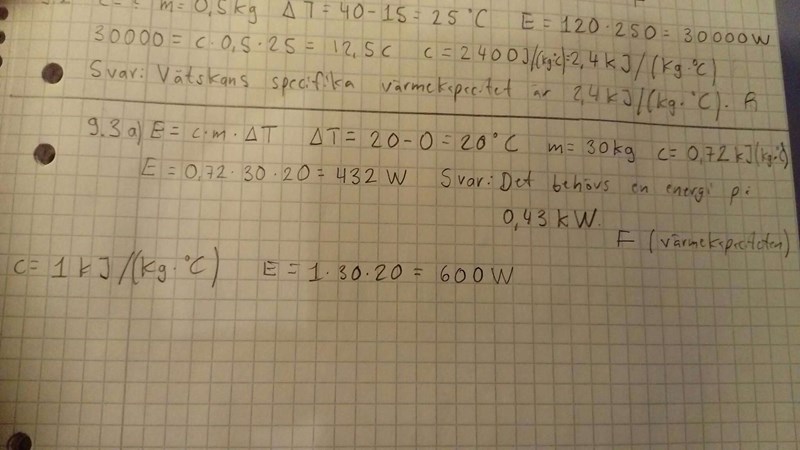 m = 0,5 kg ΔT = 40 - 15 = 25 °C E = 120 · 250 = 30000 W
30000 = c · 0,5 · 25 = 12,5 c c = 2400 J/(kg·°C) = 2,4 kJ/(kg·°C)
Svar: Vätskans specifika värmekapacitet är 2,4 kJ/(kg·°C). R
9.3 a) E = c · m · ΔT ΔT = 20 - 0 = 20 °C m = 30 kg c = 0,72 kJ/(kg·°C)
E = 0,72 · 30 · 20 = 432 W Svar: Det behövs en energi på
0,43 kW.
F (värmekapaciteten)
c = 1 kJ/(kg·°C) E = 1 · 30 · 20 = 600 W